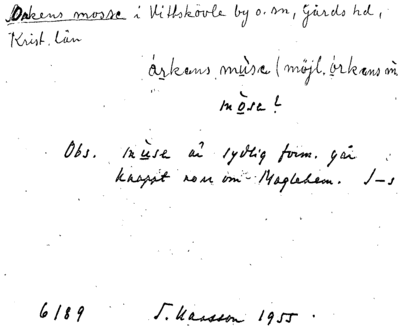 Orkens mosse i Vittskövle by o. sn, Gärds hd,
Krist. län
árkens mùse (möjl. órkens m
mòse?
Obs. mùse är sydlig form. går
knappt norr om Maglehem. J–s
6189 1955.